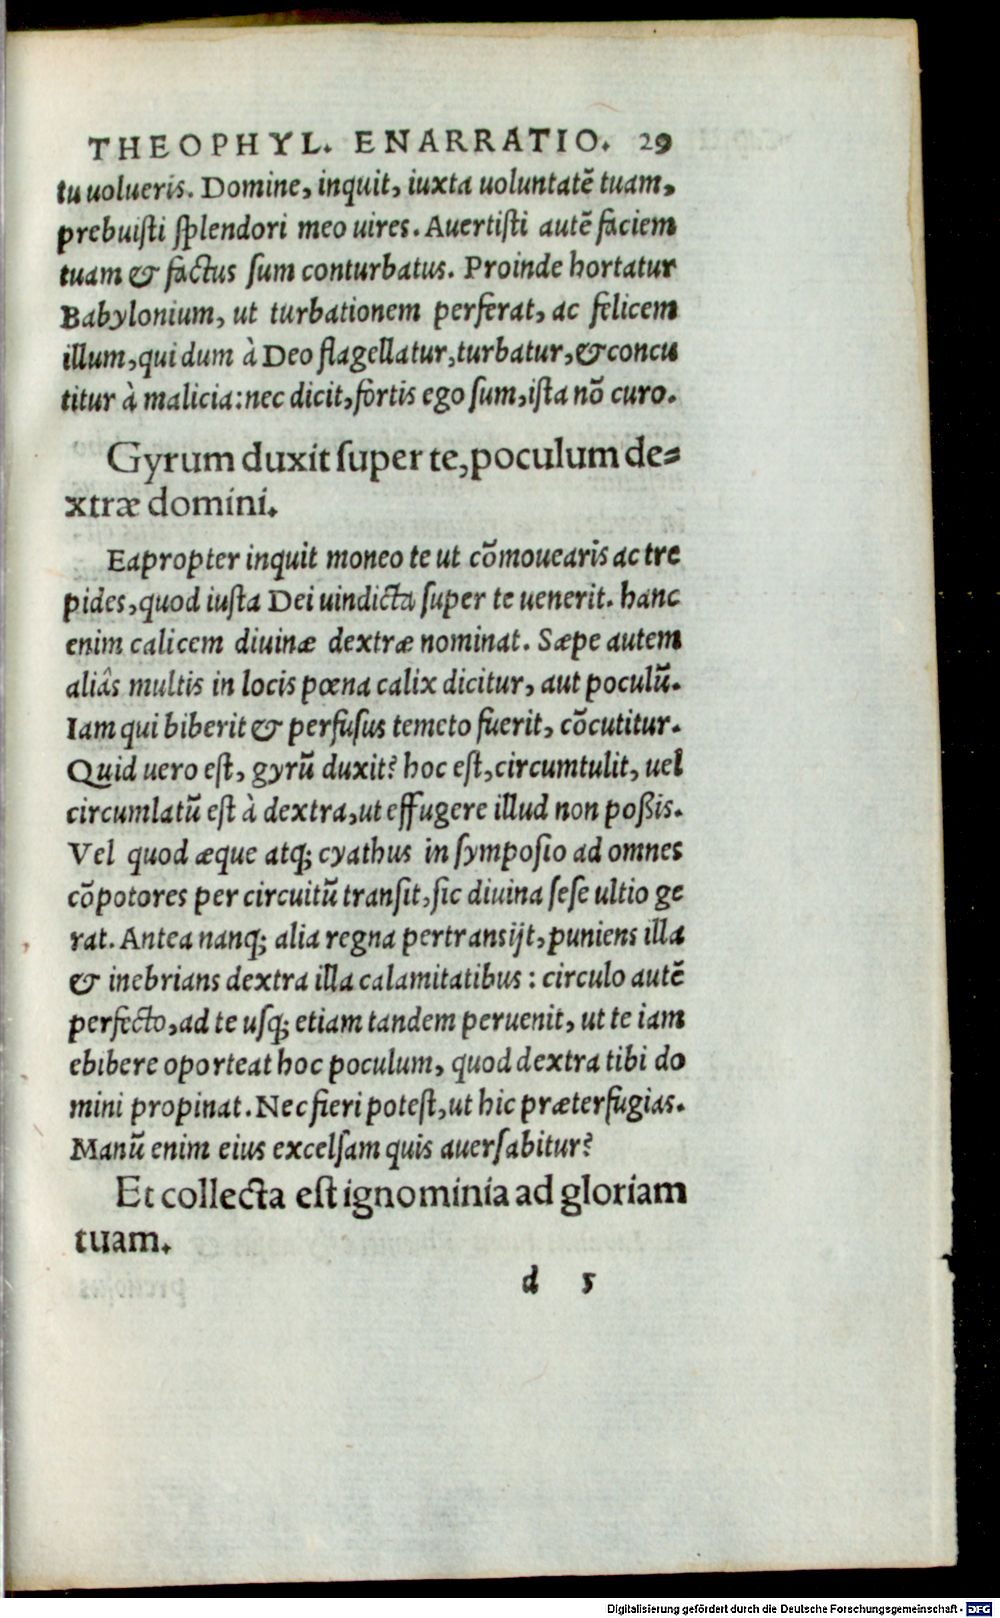 THEOPHYL. ENARRATIO. 29
tu uolueris. Domine, inquit, iuxta uoluntatē tuam,
prebuiſti ſplendori meo uires. Auertiſti autē faciem
tuam & factus ſum conturbatus. Proinde hortatur
Babylonium, ut turbationem perferat, ac felicem
illum, qui dum à Deo flagellatur, turbatur, & concu
titur à malicia: nec dicit, fortis ego ſum, iſta nō curo.
Gyrum duxit ſuper te, poculum de⸗
xtræ domini.
Eapropter inquit moneo te ut cōmouearis ac tre
pides, quod iuſta Dei uindicta ſuper te uenerit. hanc
enim calicem diuinæ dextræ nominat. Sæpe autem
aliâs multis in locis pœna calix dicitur, aut poculū.
Iam qui biberit & perfuſus temeto fuerit, cōcutitur.
Quid uero eſt, gyrū duxit? hoc eſt, circumtulit, uel
circumlatū eſt à dextra, ut effugere illud non poßis.
Vel quod æque atq; cyathus in ſympoſio ad omnes
cōpotores per circuitū tranſit, ſic diuina ſeſe ultio ge
rat. Antea nanq; alia regna pertransijt, puniens illa
& inebrians dextra illa calamitatibus: circulo autē
perfecto, ad te uſq; etiam tandem peruenit, ut te iam
ebibere oporteat hoc poculum, quod dextra tibi do
mini propinat. Nec fieri poteſt, ut hic præterfugias.
Manū enim eius excelſam quis auerſabitur?
Et collecta eſt ignominia ad gloriam
tuam.
d 5
Digitalisierung gefördert durch die Deutsche Forschungsgemeinschaft - DFG